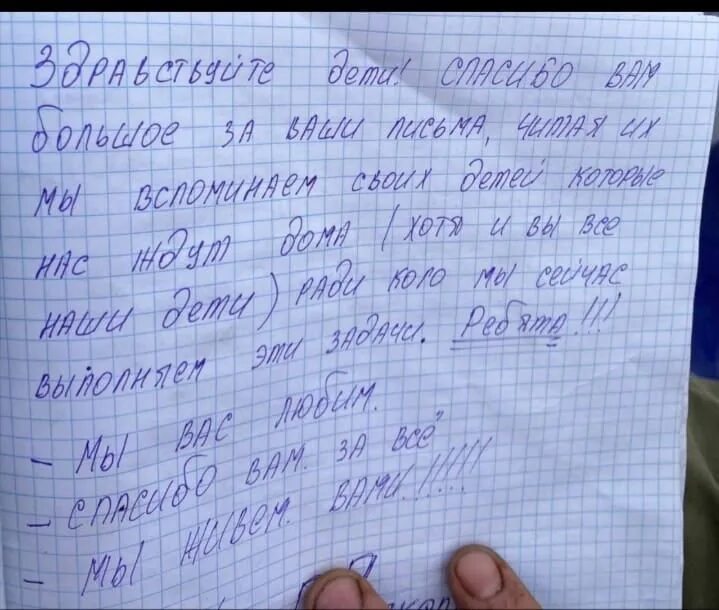 Здравствуйте дети! Спасибо вам
большое за ваши письма, читая их
мы вспоминаем своих детей которые
нас ждут дома (хотя и вы все
наши дети) ради кого мы сейчас
выполняем эти задачи. Ребята!!!
- Мы вас любим.
- Спасибо вам. за всё"
- Мы живем. вами.!!!!!